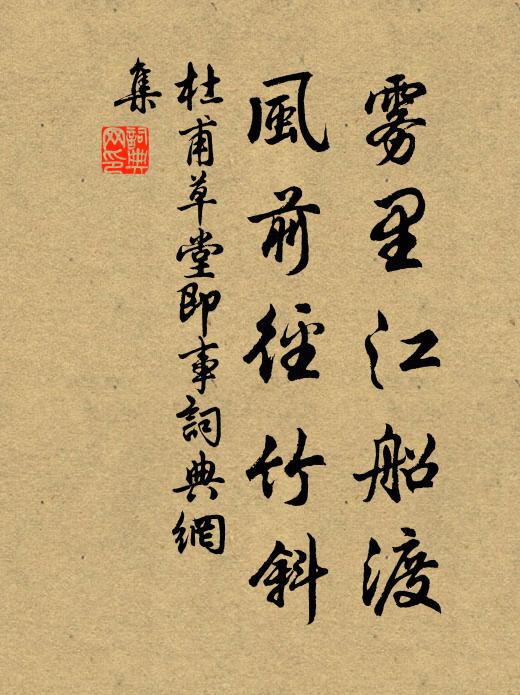 雾里江船渡
風前徑竹斜
杜甫草堂即事詞典網
集
詞典
网印